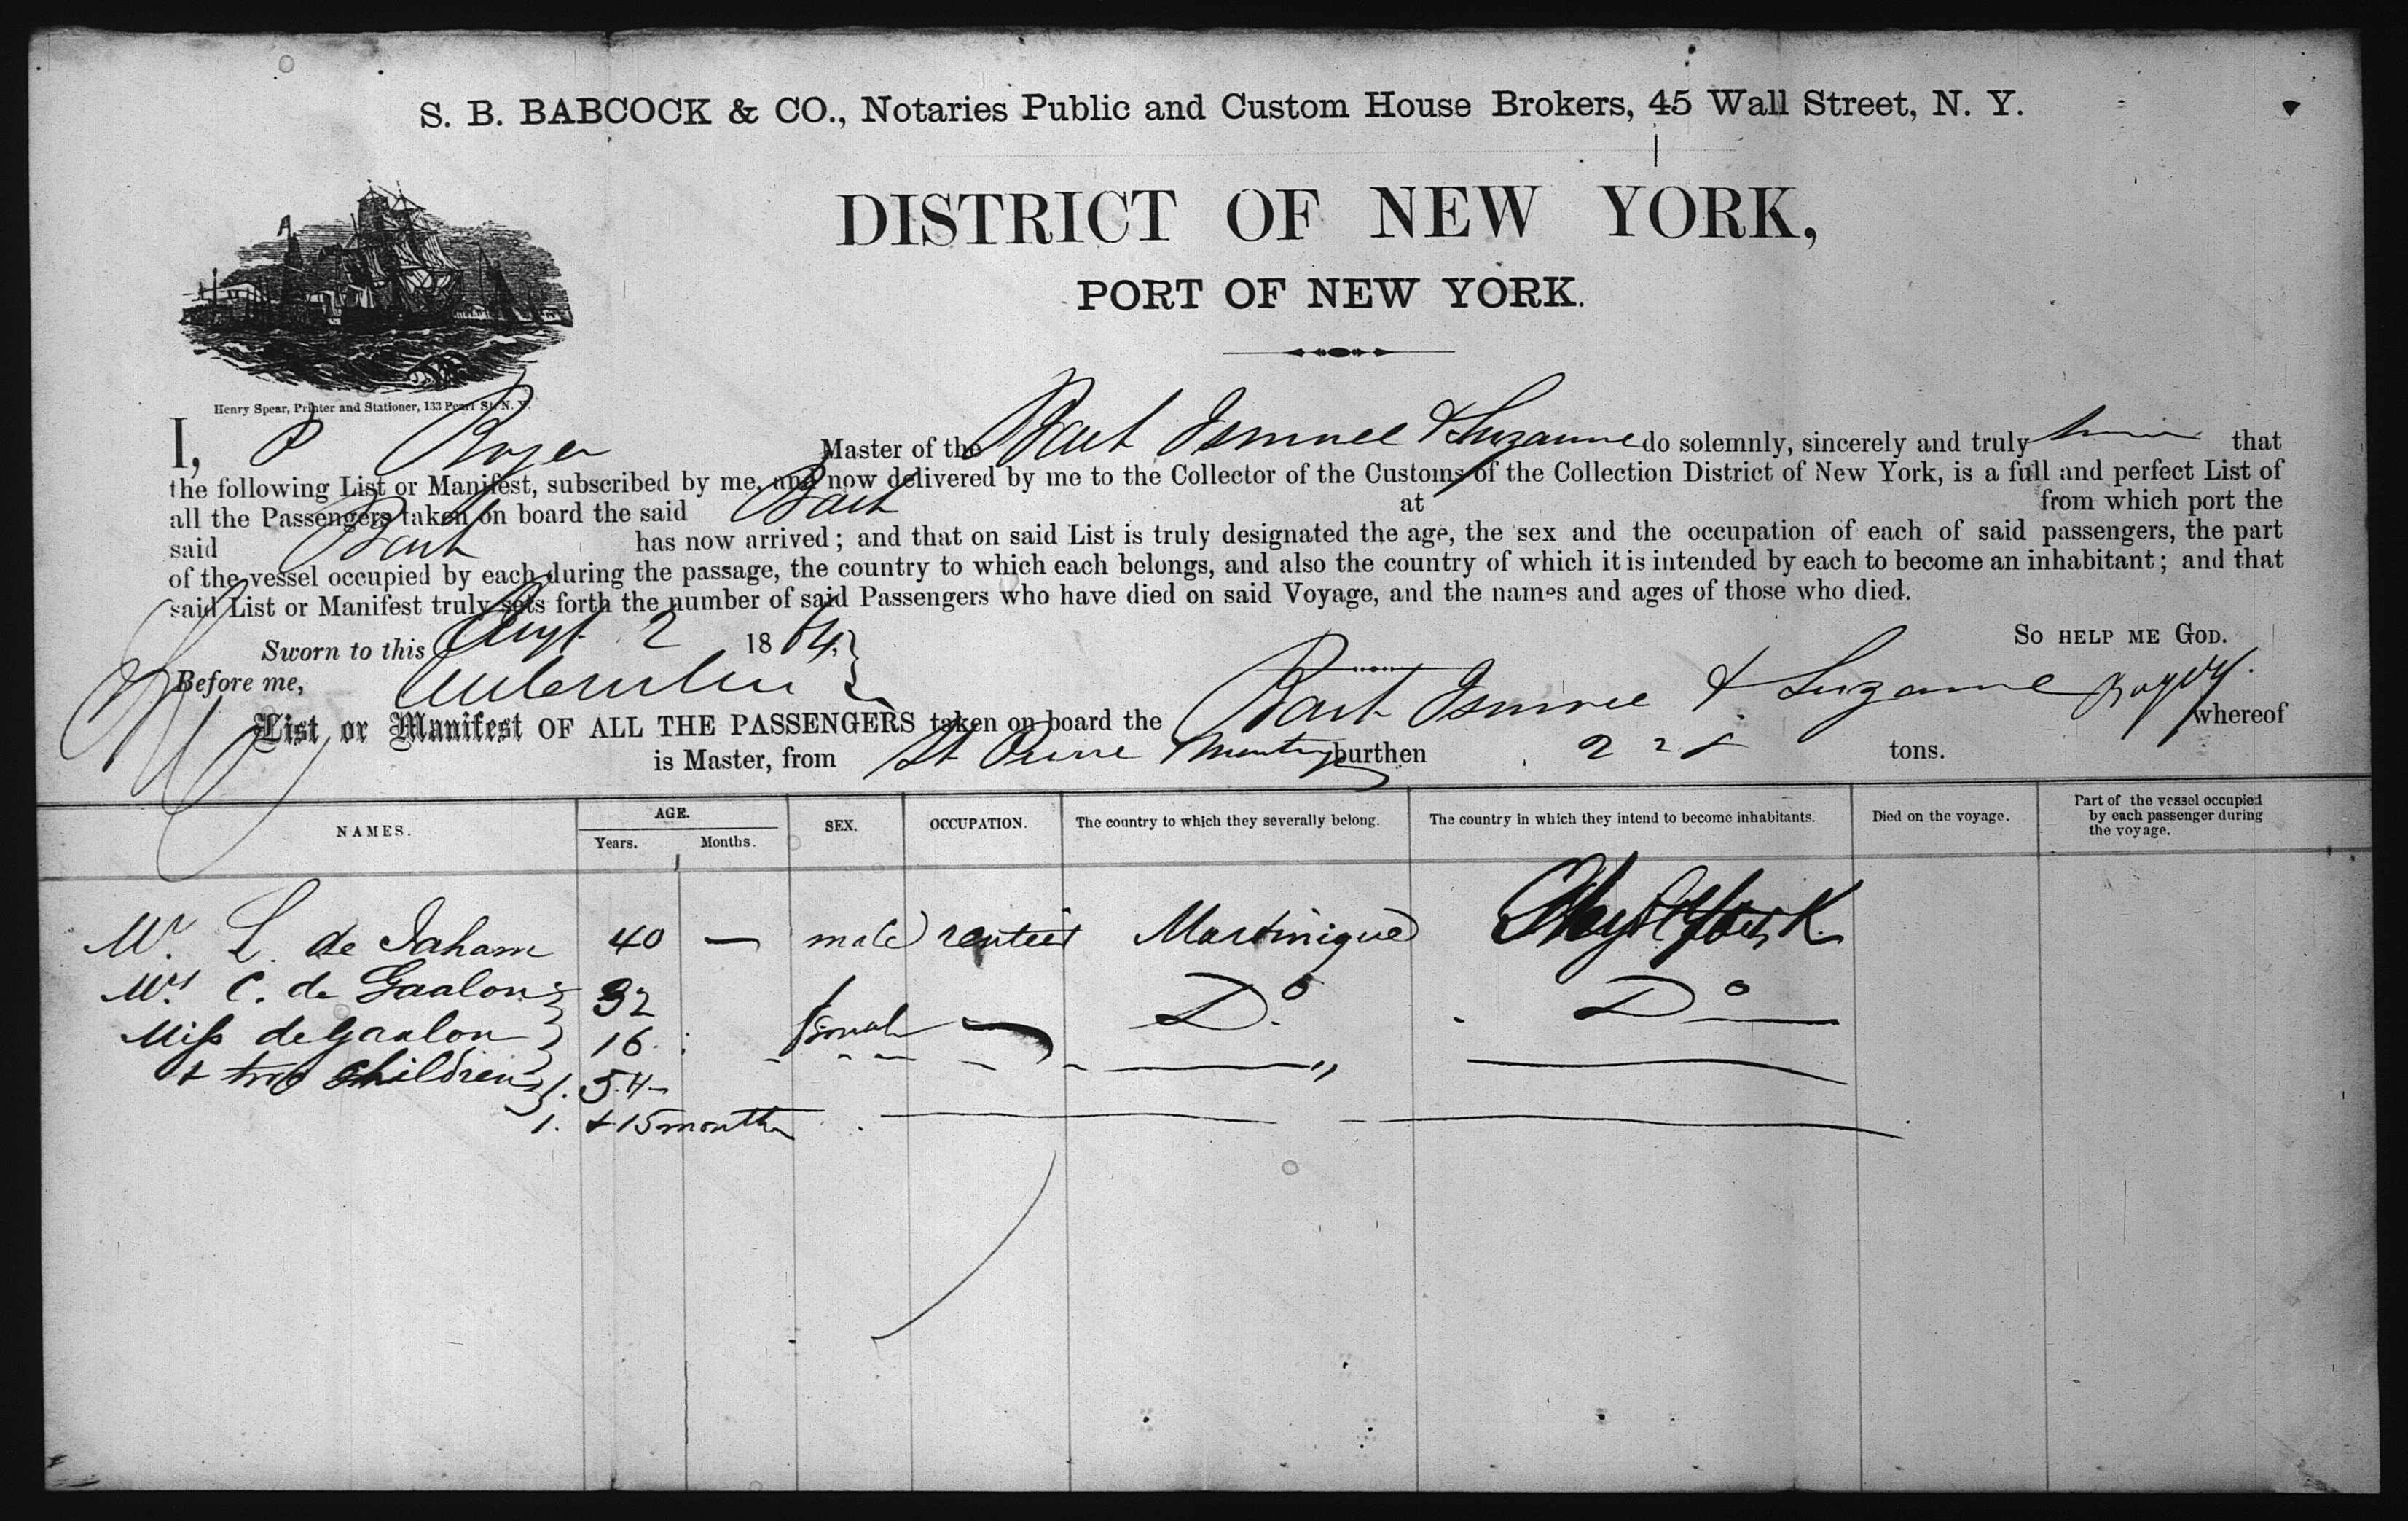 S. B. BABCOCK & CO., Notaries Public and Custom House Brokers, 45 Wall Street, N. Y.
DISTRICT OF NEW YORK,
PORT OF NEW YORK.
Henry Spear, Printer and Stationer, 133 Pearl St. N. Y.
I, P Roger Master of the Bark & Suzanne do solemnly, sincerely and truly that
the following List or Manifest, subscribed by me, and now delivered by me to the Collector of the Customs of the Collection District of New York, is a full and perfect List of
all the Passengers taken on board the said Bark at from which port the
said Bark has now arrived; and that on said List is truly designated the age, the sex and the occupation of each of said passengers, the part
of the vessel occupied by each during the passage, the country to which each belongs, and also the country of which it is intended by each to become an inhabitant; and that
said List or Manifest truly sets forth the number of said Passengers who have died on said Voyage, and the names and ages of those who died.
Sworn to this Augt 2 1864, SO HELP ME GOD.
Before me,
List or Manifest OF ALL THE PASSENGERS taken on board the Bark & Suzanne Roger whereof
is Master, from St Pierre burthen 228 tons.
NAMES. AGE. SEX. OCCUPATION. The country to which they severally belong. The country in which they intend to become inhabitants. Died on the voyage. Part of the vessel occupied by each passenger during the voyage.
Years. Months.
Mr. L. de Jaham 40 — male rentier Martinique New York
Mrs. C. de Gaalon 32 female Do. Do
Miss de Gaalon 16
& two children 1. 5.4
1. + 15 months